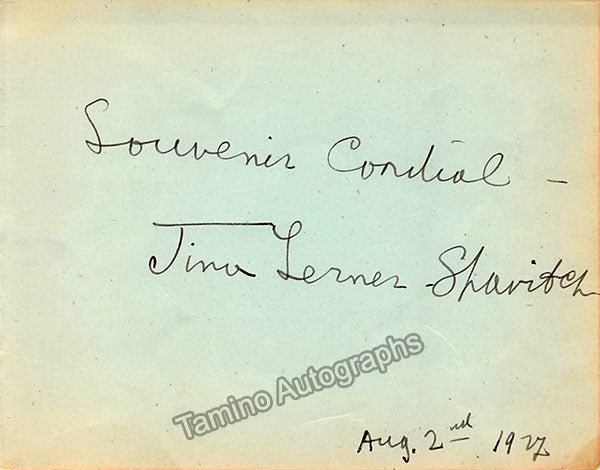 Souvenir Cordial –
Tina Lerner-Shavitch
Tamino Autographs
Aug. 2nd 1927